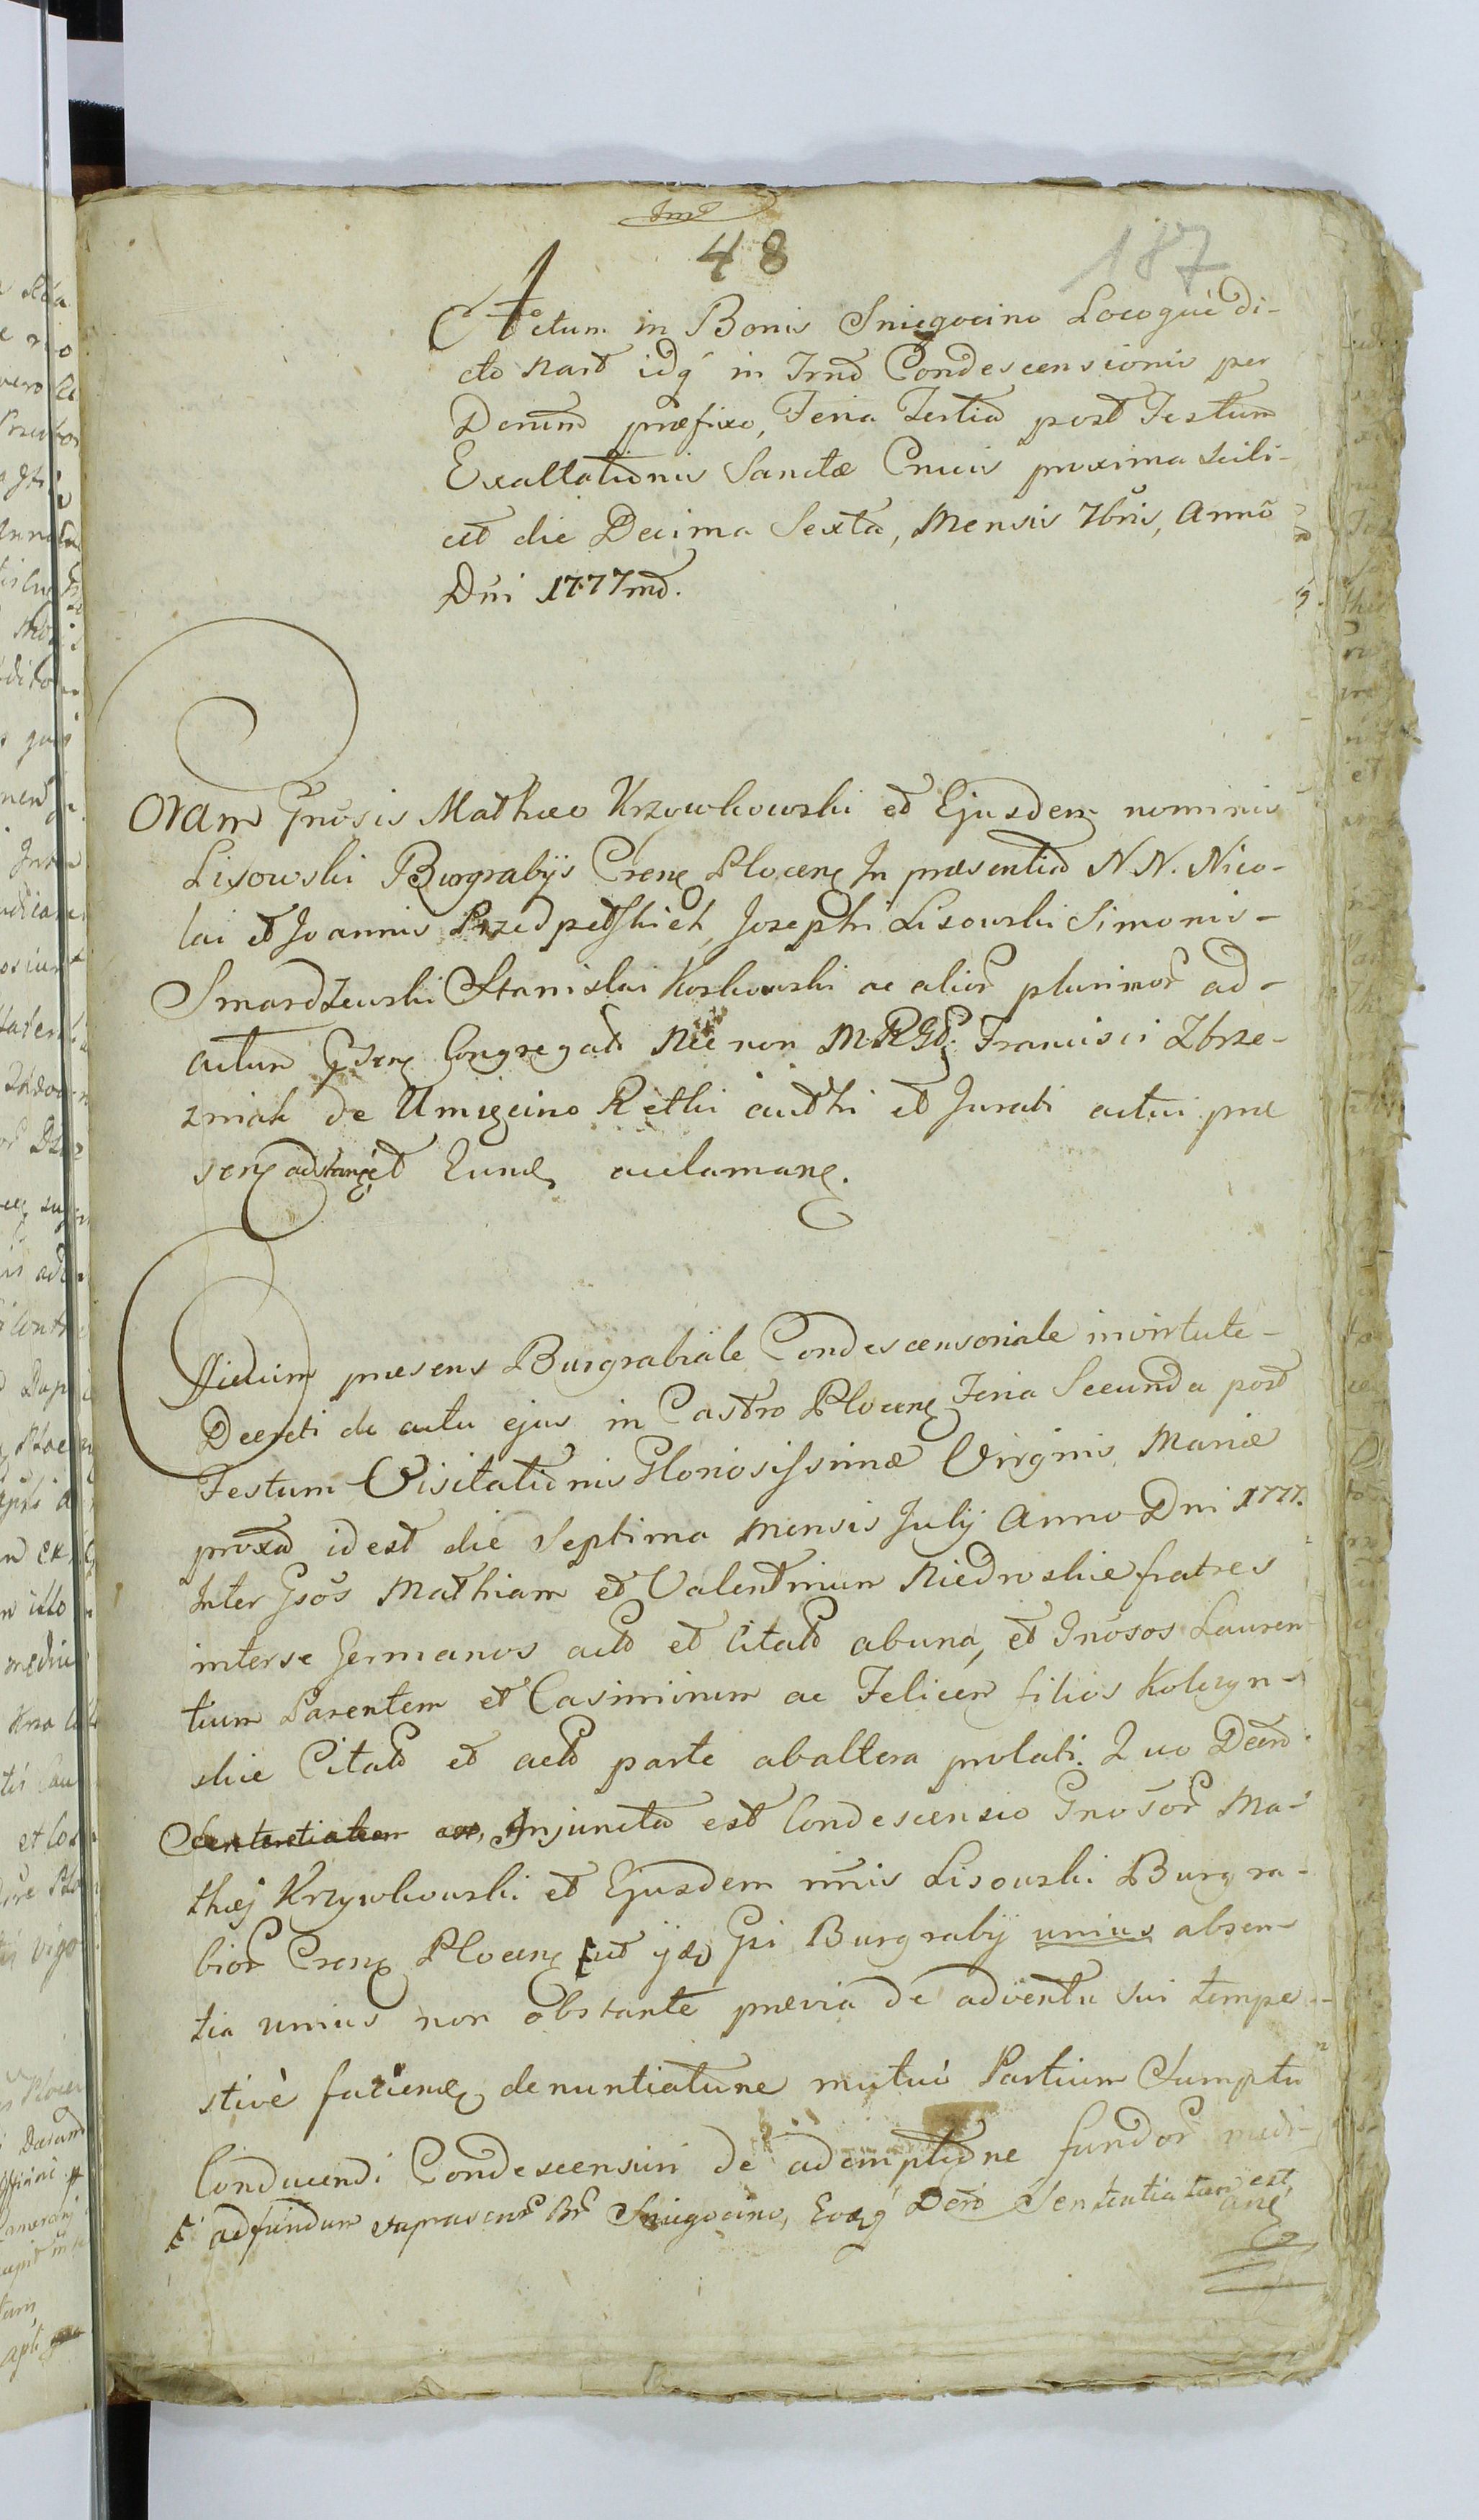 48
187
Actum in Bonis Sniegocino Locoque di-
cto Nart idq́ in Trnõ Condescensionis per
Decrum præfixo, Feria Tertia post Festum
Exaltationis Sanctæ Crucis proxima scili-
cet die Decima Sexta, Mensis 7bris, Anno
Dni 1777mo.
Coram Gnosis Mathæo Krzywkowski et Ejusdem nominis
Lisowski Burgrabijs Crens Plocens In præsentia N.N. Nico-
lai et Joannis Przedpełskich, Josephi Lisowski Simonis
Smardzewski Stanislai Koskowski ac alior plurimor ad-
actum Gsens Congregat Nec non M. R. Gd: Francisci Zbrze-
zniak de Umięcino Rethi auth̃i et Jurati actui præ
sens adstanš et Eund acclamans.
Officium præsens Burgrabiale Condescensoriale in virtute
Decreti de actu ejus in Castro Plocens Feria Secunda post
Festum Visitationis Gloriosissimæ Virginis Mariæ
proxa id est die Septima Mensis Julij Anno Dni 1777.
Inter Gsos Mathiam et Valentinum Niedroskie fratres
inter se Germanos act et Citat ab una, et Gnosos Lauren-
tium Parentem et Casimirum ac Felicem filios Kolczyn-
skie Citat et act parte ab altera prolati. Quo Decro
Sententiatum Injuncta est Condescensio Gnosor Ma-
thæj Krzywkowski et Ejusdem nnis Lisowski Burgra-
bior Crens Plocens ut ijd Gsi Burgrabij unius absen-
tia unius non obstante prævia de adventu sui tempe-
stivè faciend denuntiatione mutuo Partium Sumptu
Conducendi Condescensuri de ademptione fundor medi-
ad fundum supra sens Br Sniegocino, Eoq́ Decro Sententiatum est,
ane